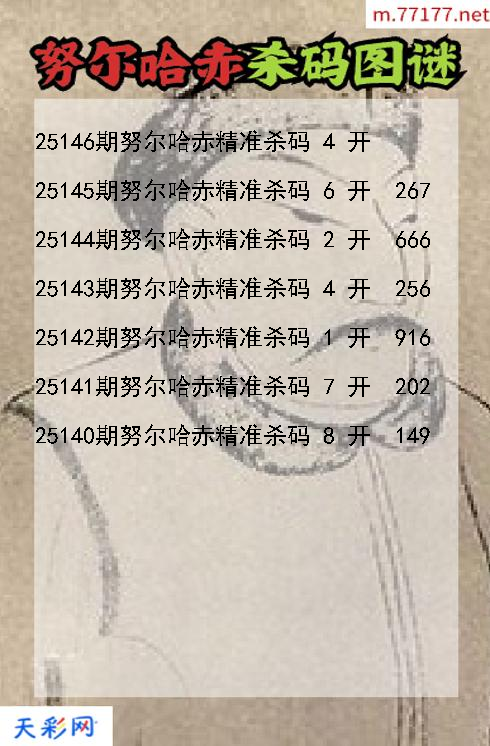 m.77177.net
努尔哈赤杀码图谜
25146期努尔哈赤精准杀码 4 开
25145期努尔哈赤精准杀码 6 开 267
25144期努尔哈赤精准杀码 2 开 666
25143期努尔哈赤精准杀码 4 开 256
25142期努尔哈赤精准杀码 1 开 916
25141期努尔哈赤精准杀码 7 开 202
25140期努尔哈赤精准杀码 8 开 149
天彩网